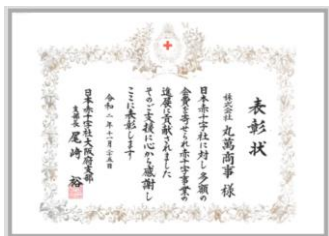 表彰状
株式会社 丸萬商事 様
日本赤十字社に対し多額の
金費を寄せられ赤十字事業の
進展に貢献されました
そのご支援に心から感謝し
ここに表彰します
令和二年十一月二十五日
日本赤十字社大阪府支部
支部長 尾崎 裕